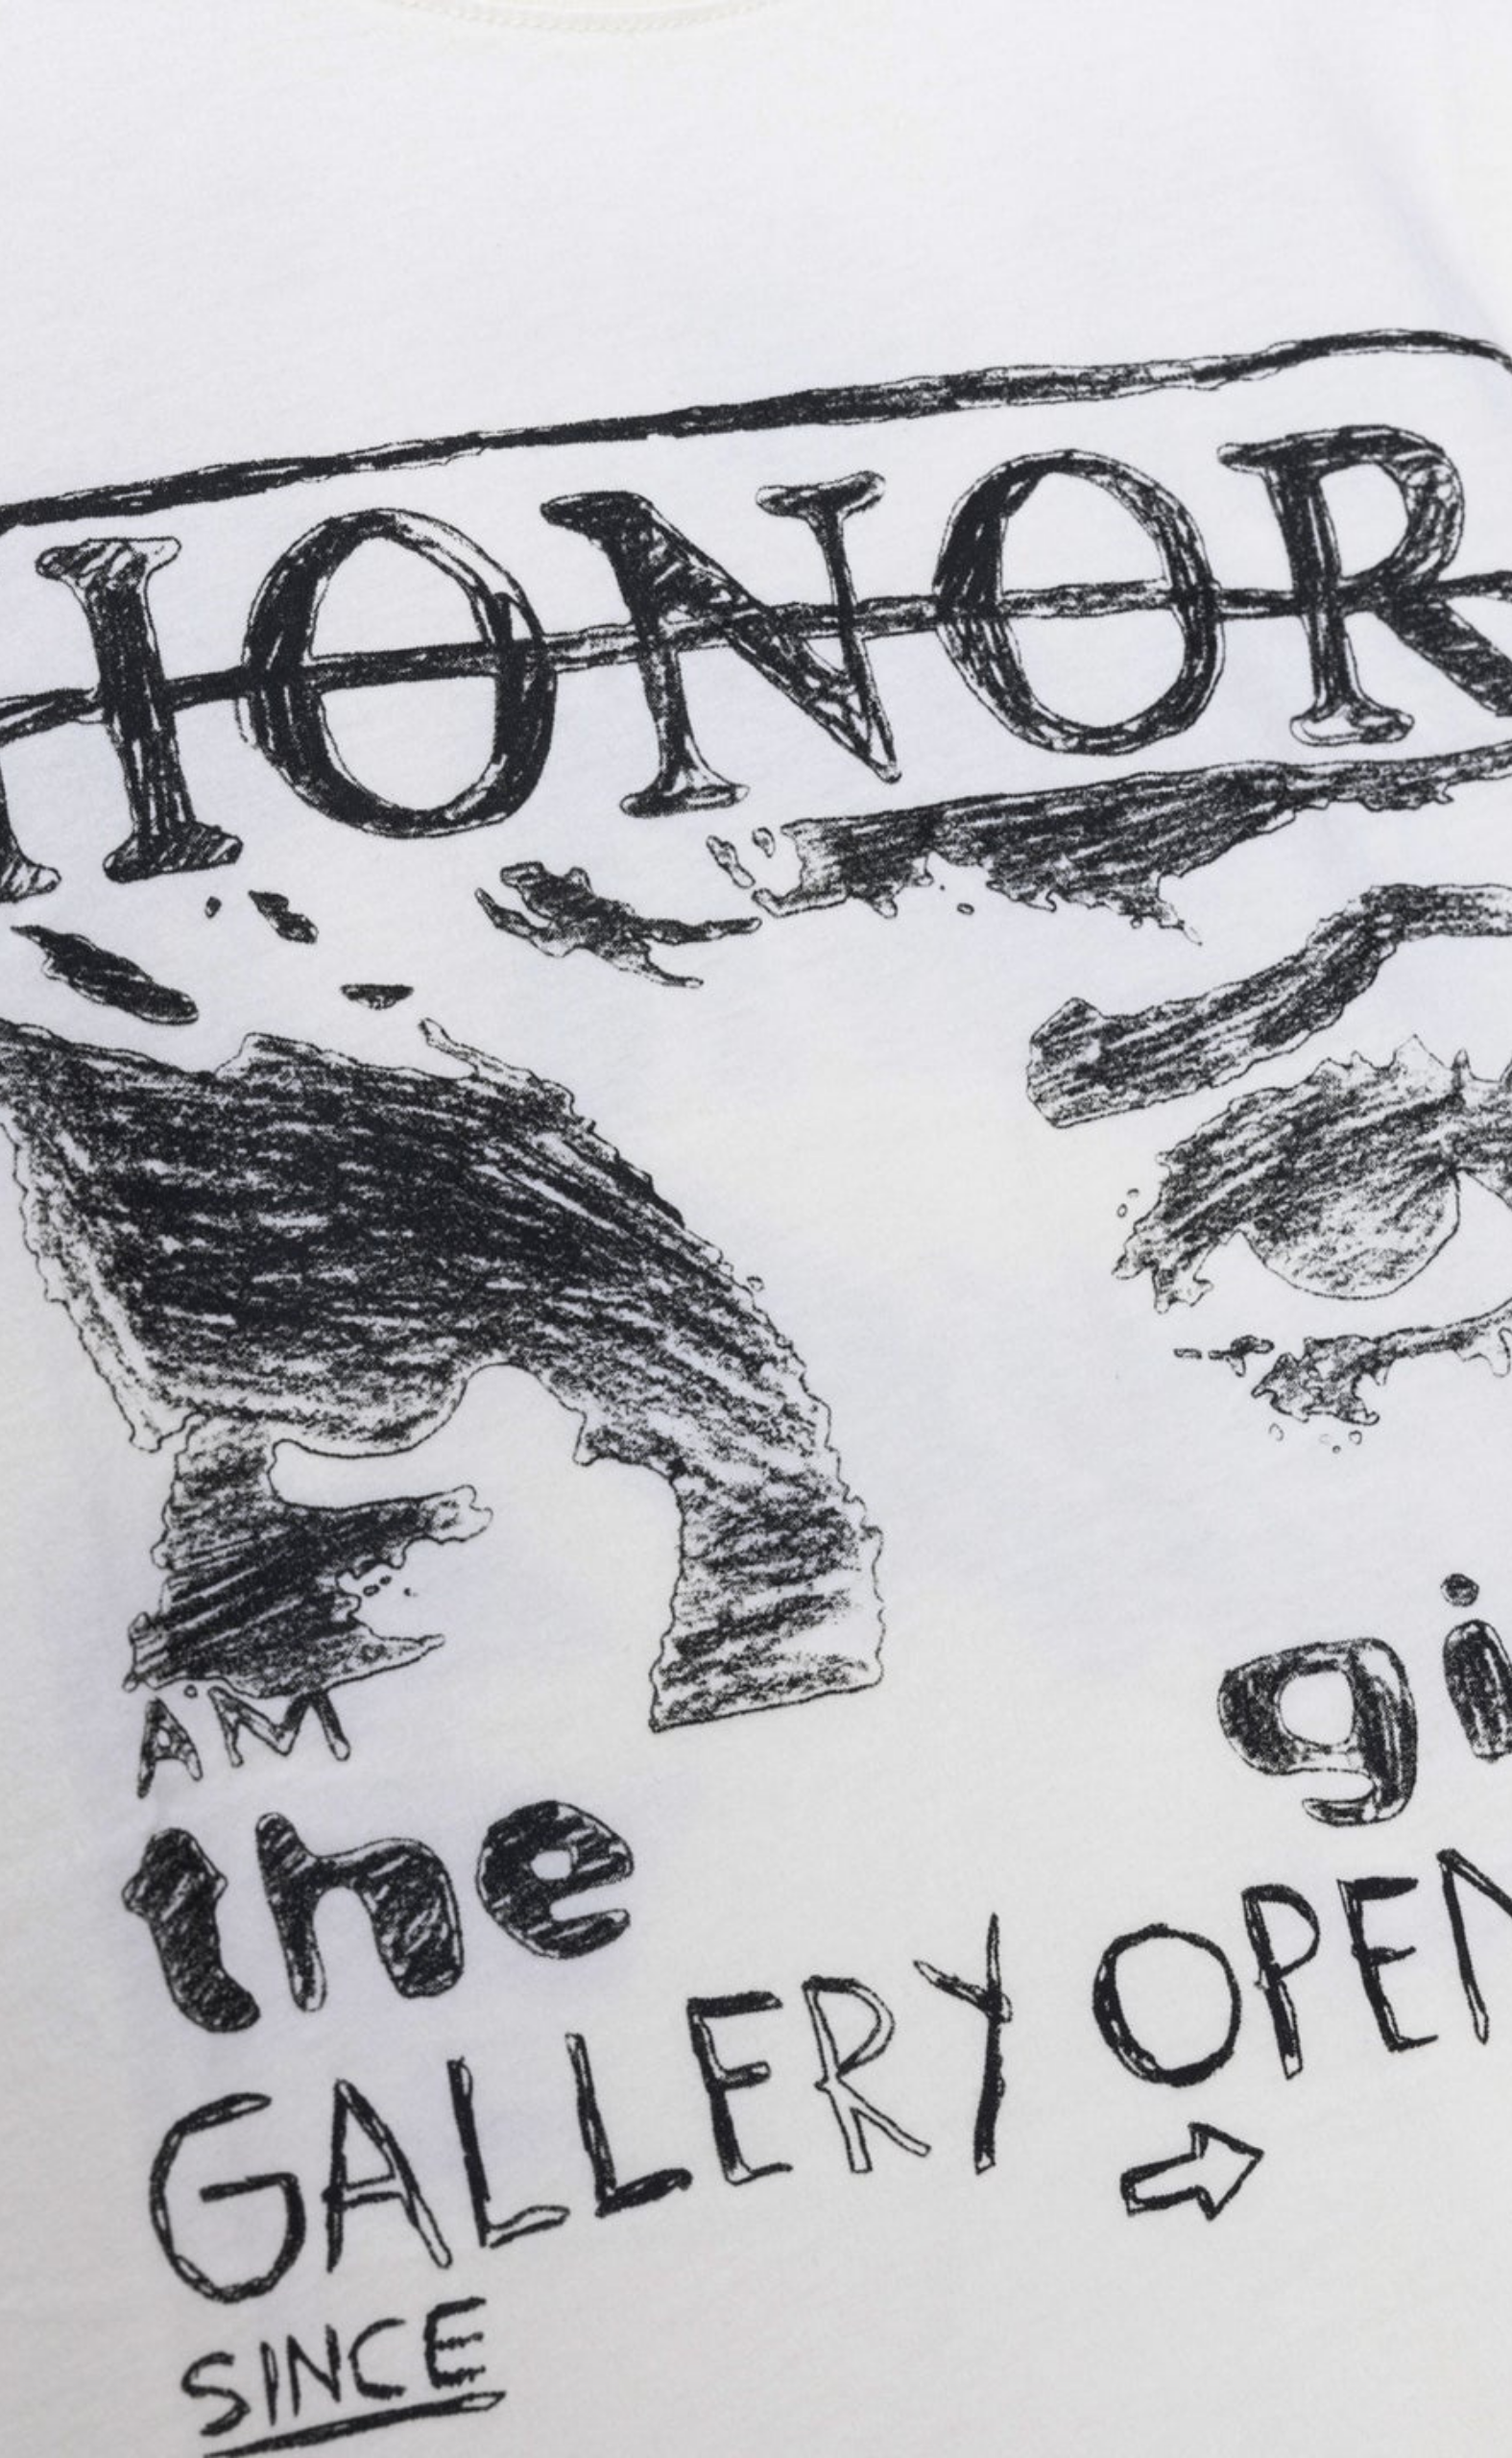 HONOR
gi
AM
the
GALLERY OPEN
SINCE